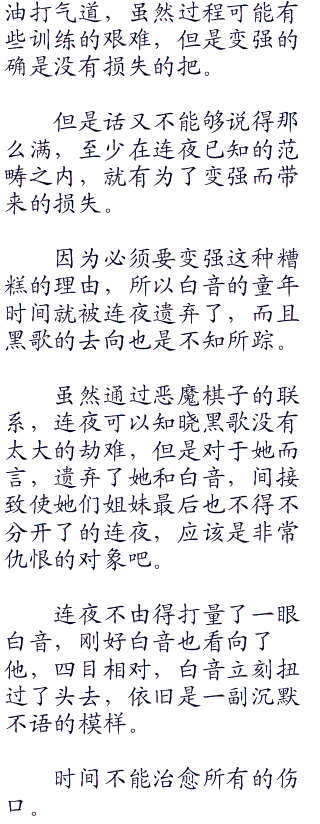 油打气道，虽然过程可能有
些训练的艰难，但是变强的
确是没有损失的把。
但是话又不能够说得那
么满，至少在连夜已知的范
畴之内，就有为了变强而带
来的损失。
因为必须要变强这种糟
糕的理由，所以白音的童年
时间就被连夜遗弃了，而且
黑歌的去向也是不知所踪。
虽然通过恶魔棋子的联
系，连夜可以知晓黑歌没有
太大的劫难，但是对于她而
言，遗弃了她和白音，间接
致使她们姐妹最后也不得不
分开了的连夜，应该是非常
仇恨的对象吧。
连夜不由得打量了一眼
白音，刚好白音也看向了
他，四目相对，白音立刻扭
过了头去，依旧是一副沉默
不语的模样。
时间不能治愈所有的伤
口。